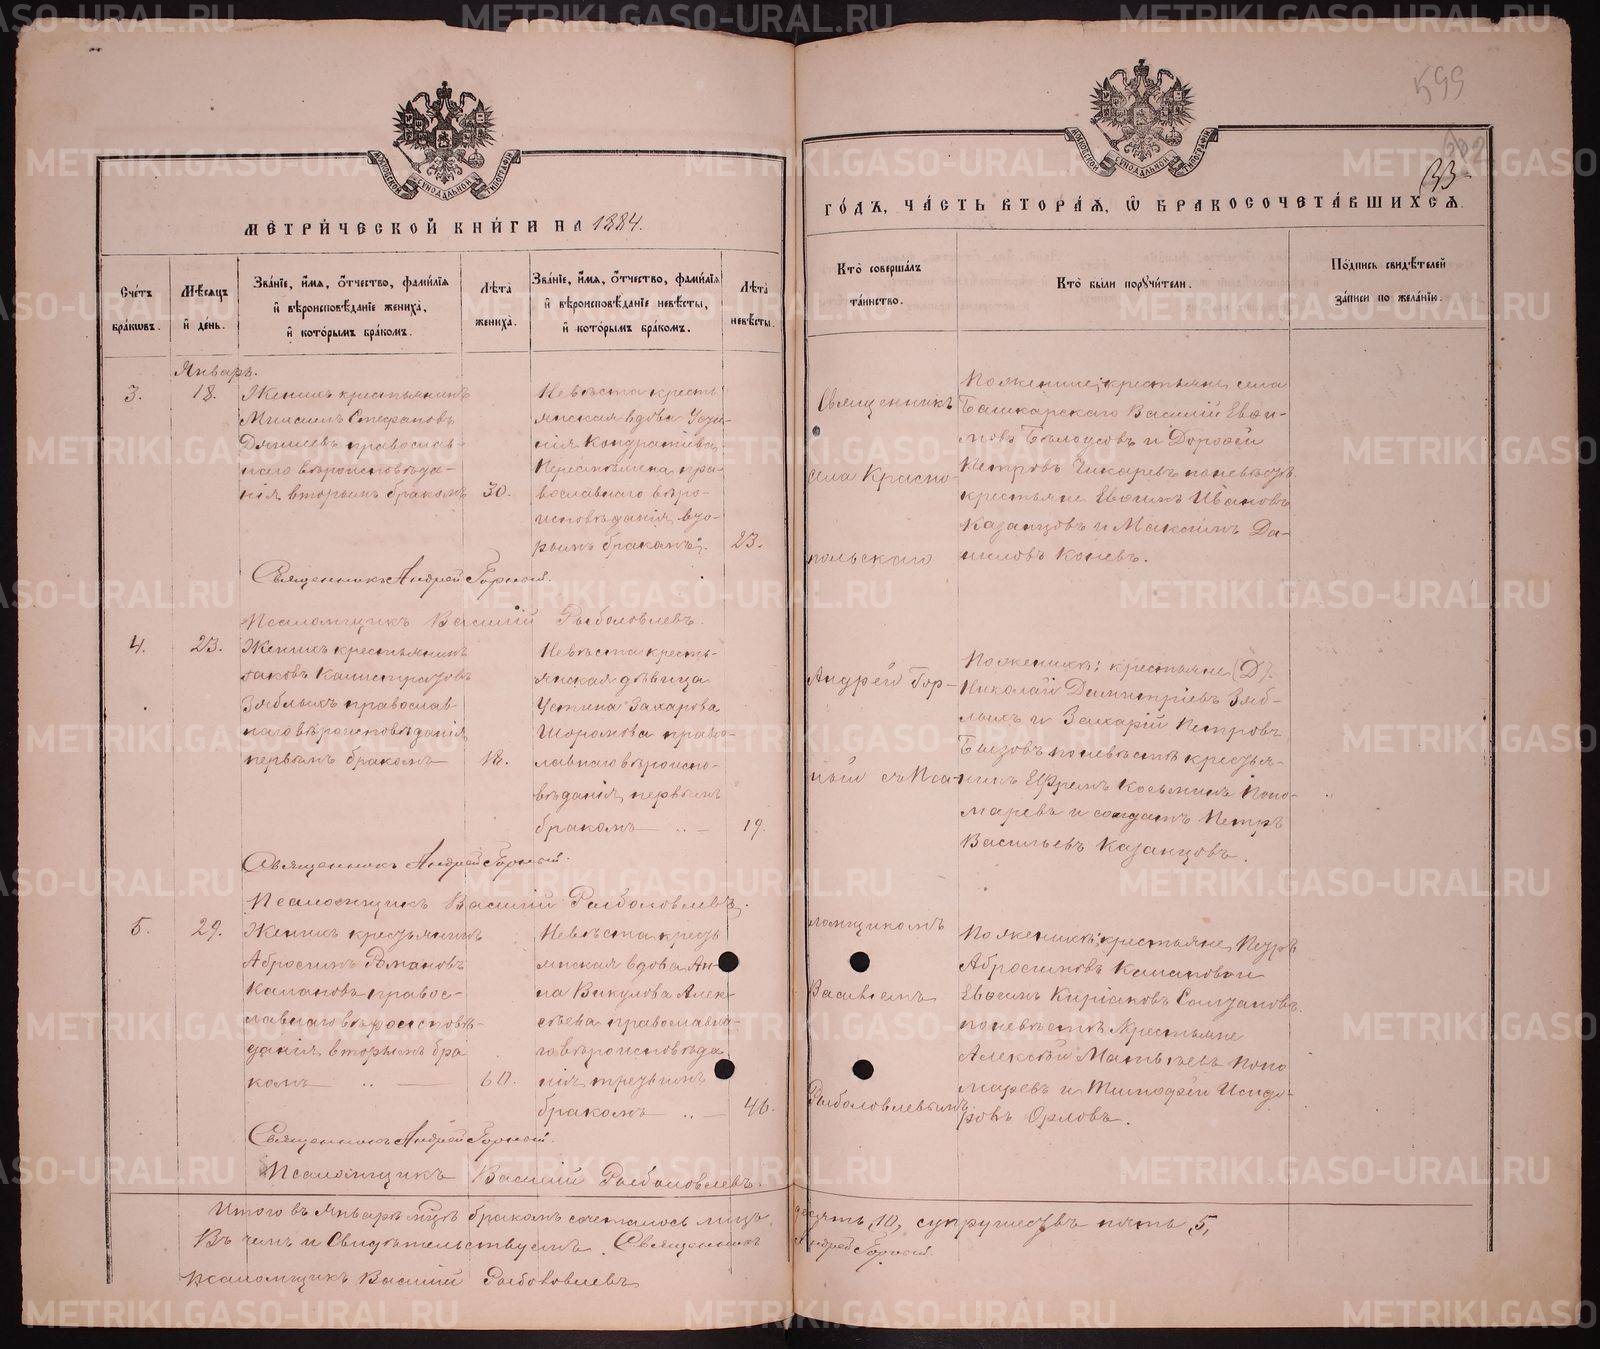 МОСКОВСКОЙ СѴНОДАЛЬНОЙ ТИПОГРАФІИ
МЕТРИЧЕСКОЙ КНИГИ НА 1884.
Счетъ браковъ.
Мѣсяцъ и день.
Званіе, имя, отчество, фамилія и вѣроисповѣданіе жениха, и которымъ бракомъ.
Лѣта жениха.
Званіе, имя, отчество, фамилія и вѣроисповѣданіе невѣсты, и которымъ бракомъ.
Лѣта невѣсты.
Январь.
3.
18.
Женихъ крестьянинъ
Степановъ
православ-
наго вѣроисповѣда-
нія вторымъ бракомъ
30.
Невѣста кресть
янская вдова
Кондратіева
пра-
вославнаго вѣро-
исповѣданія вто-
рымъ бракомъ.
23.
Священникъ Андрей Горный.
Псаломщикъ Василій Рыболовлевъ.
4.
23.
Женихъ крестьянинъ
Іаковъ Калистратовъ
Зяблыхъ православ
наго вѣроисповѣданія
первымъ бракомъ
18.
Невѣста кресть-
янская дѣвица
Устина Захарова
Шоромова право-
славнаго вѣроиспо-
вѣданія первымъ
бракомъ
19.
Священникъ Андрей Горный.
Псаломщикъ Василій Рыболовлевъ.
5.
29.
Женихъ крестьянинъ
Абросимъ Романовъ
правос-
лавнаго вѣроисповѣ-
данія вторымъ бра
комъ
60.
Невѣста кресть
янская вдова Ан-
на Викулова Алек-
сѣева православна-
го вѣроисповѣда
нія третьимъ
бракомъ
46.
Священникъ Андрей Горный.
Псаломщикъ Василій Рыболовлевъ.
Итого въ Январѣ м̃цѣ бракомъ сочеталось лицъ
Въ чемъ и Свидѣтельствуемъ. Священникъ
Псаломщикъ Василій Рыболовлевъ
599
33
МОСКОВСКОЙ СѴНОДАЛЬНОЙ ТИПОГРАФІИ
ГОДЪ, ЧАСТЬ ВТОРАЯ, Ѡ БРАКОСОЧЕТАВШИХСЯ.
Кто совершалъ таинство.
Кто были поручители.
Подпись свидѣтелей записи по желанію.
Священникъ
села Красно-
польскаго
Андрей Гор-
ный съ Пса-
ломщикомъ
Василіемъ
Рыболовлевымъ
По женихѣ; крестьяне села
Башкарскаго Василій Евѳи-
мовъ Бѣлоусовъ и Дороѳей
Петровъ Чикаревъ по невѣстѣ
крестьяне Евѳимъ Ивановъ
Казанцовъ и Максимъ Да-
ниловъ Коневъ.
По женихѣ: крестьяне (Д).
Николай Димитріевъ Зяб-
лыхъ и Захарій Петровъ
Бызовъ по невѣстѣ крестья-
нинъ Ефремъ Косьминъ Поно-
маревъ и солдатъ Петръ
Васильевъ Казанцовъ.
По женихѣ; крестьяне, Петръ
Абросимовъ
Евѳимъ Киріаковъ
по невѣстѣ Крестьяне
Алексѣй Матвѣевъ Поно
маревъ и Тимоѳей Исидо-
ровъ Орловъ.
десять, 10, супружествъ пять 5,
Андрей Горный.
METRIKI.GASO-URAL.RU